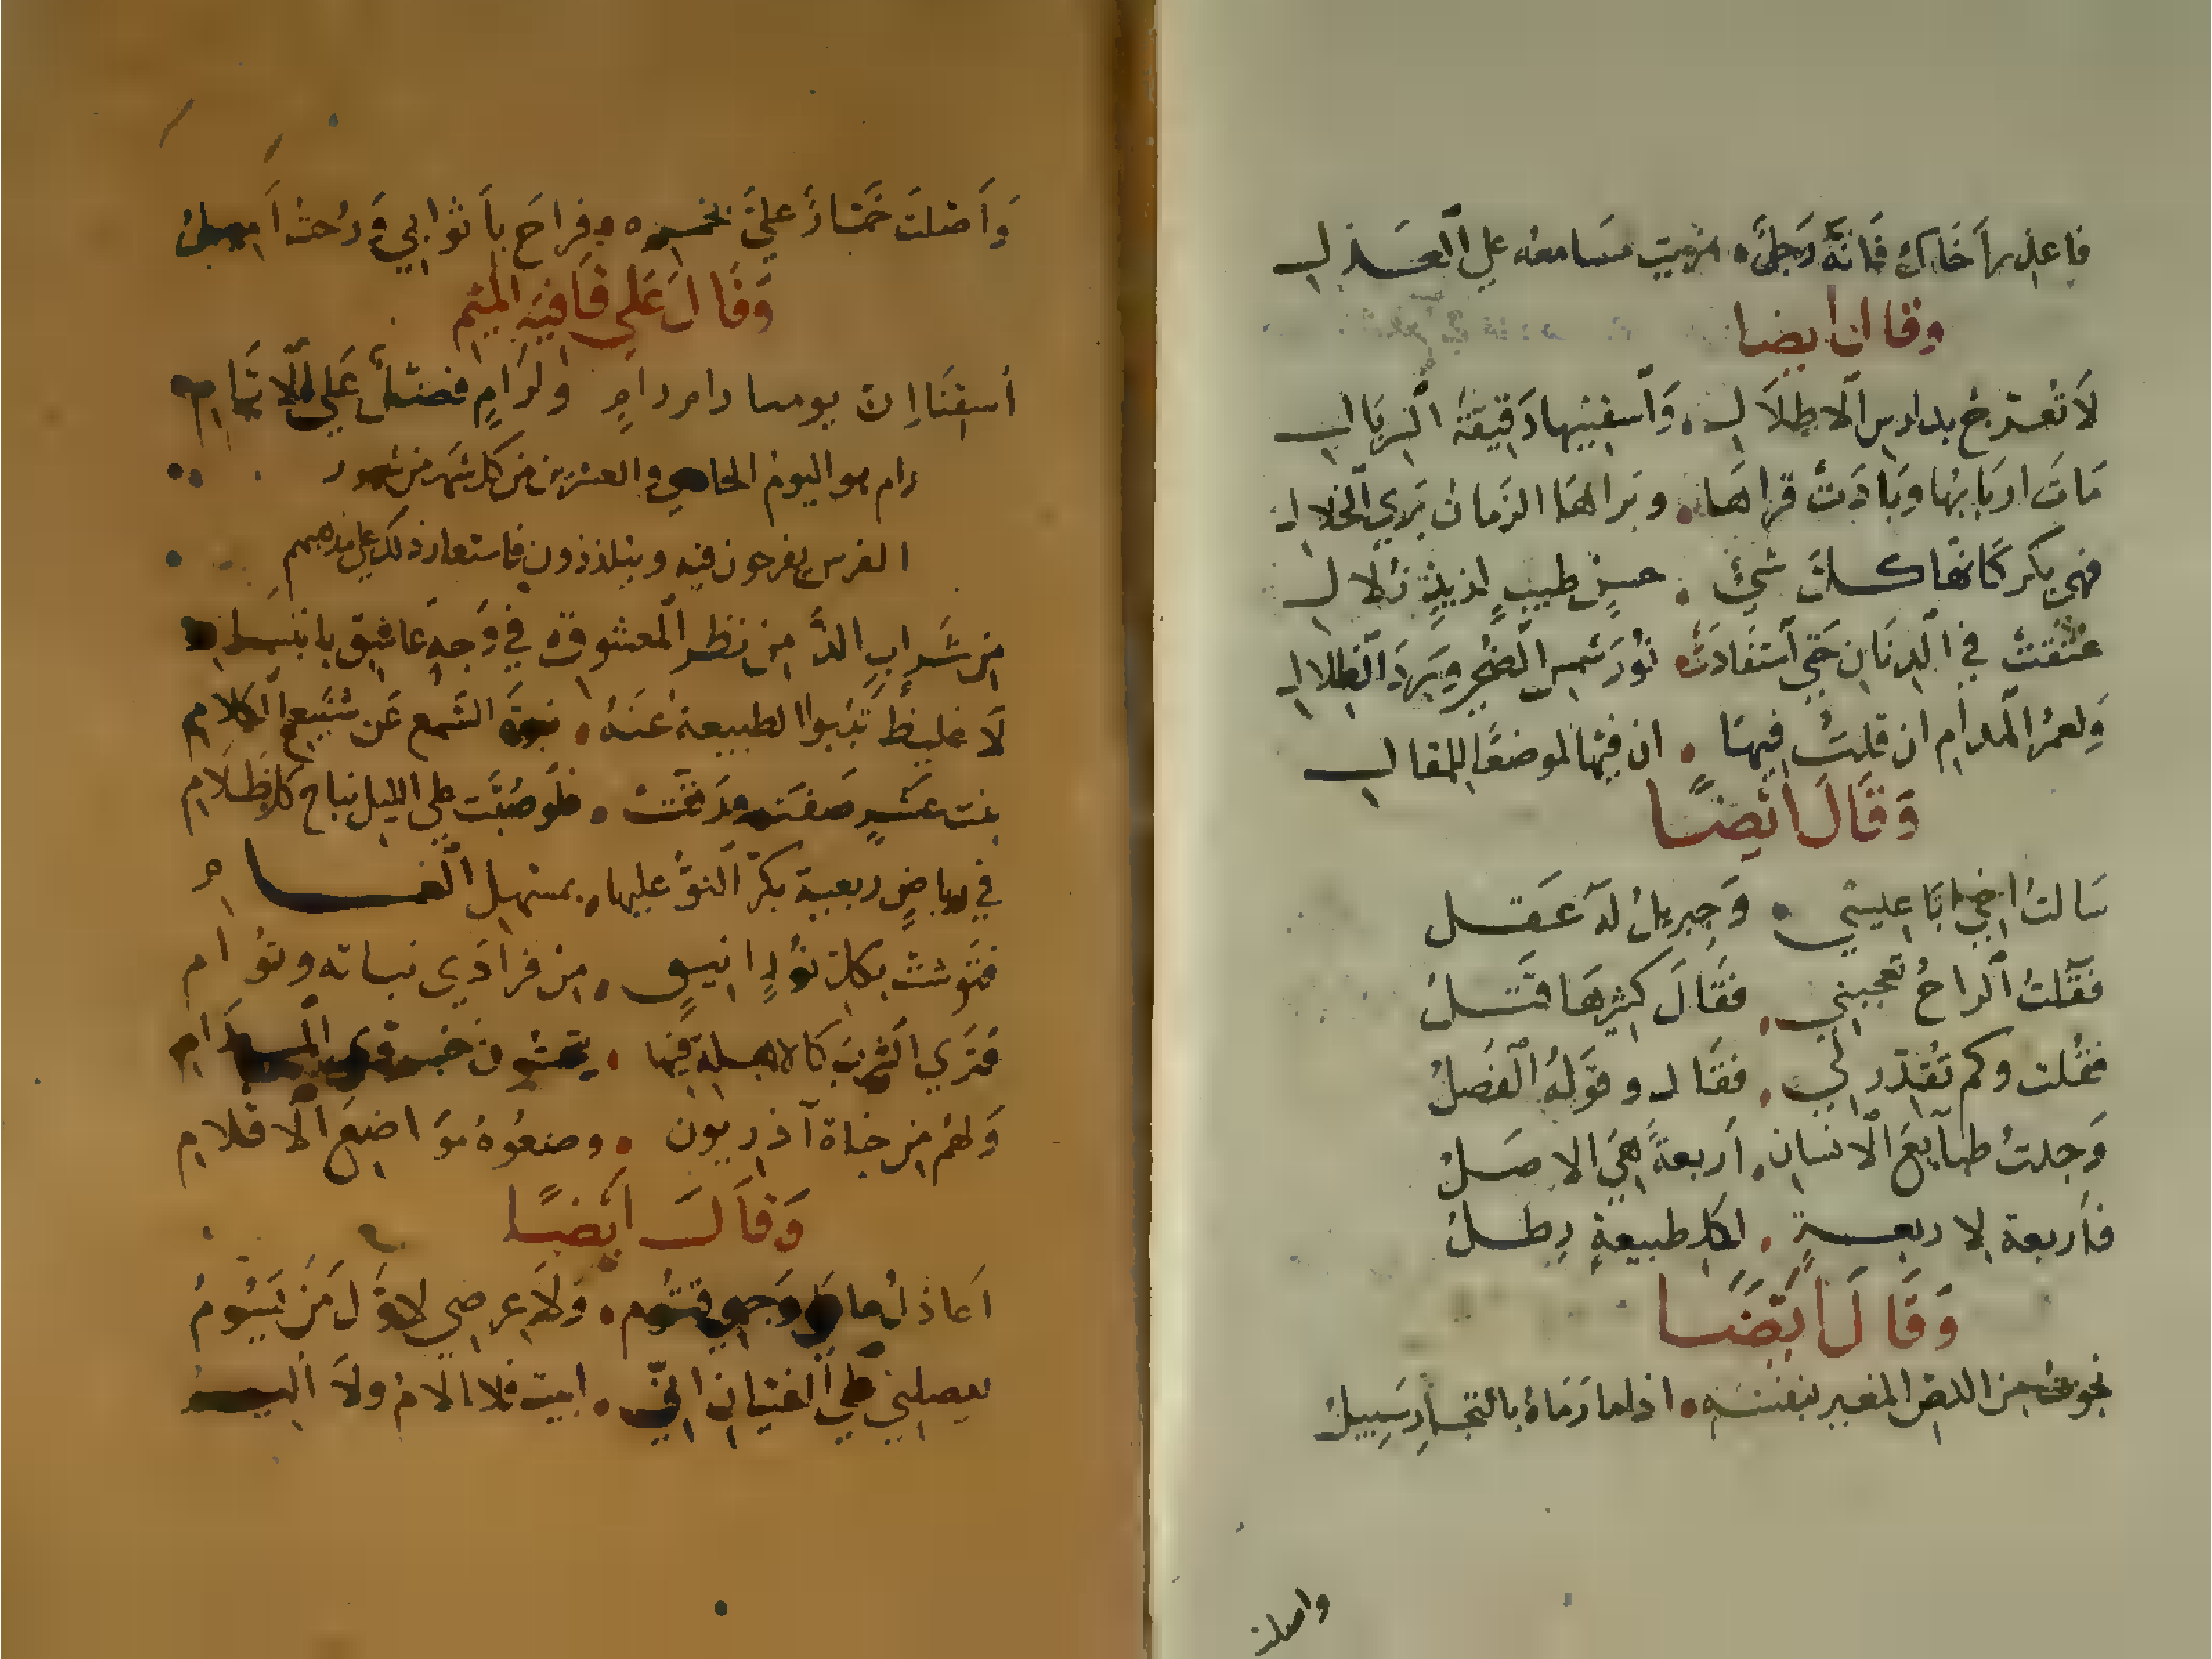 فاعذر اَخَاك فَانهُ رَجلٌ . مرنت مسَامعه على اَلعَــذلِ
وقال ايضا
لاَ تُعــرّج بدارس اَلاطلاَلِ . وَاَسقنيهَا رَقيقةَ السّربَالِ
مَاتَ اربَابهَا وبَادَتْ قراهَا . وبَراهَا الزمان بَري اَلخلالِ
فهي بكر كَانهَا كــل شيْ . حسن طيبٍ لذيذٍ زُلالِ
عُتّقتْ في اَلدنَان حَتي اَستفَادَتْ نُورَ شمس اَلضحى وبَردَ اَلظلالِ
وَلعمرُ اَلمدام ان قلتُ فيهَا . ان فيهَا لموضعًا للمقالِ
وَقَالَ اَيضًــا
سَالتُ اخي ابَا عيسَي . وَجبريلُ لهُ عَقــل
فقلتُ اَلراحُ تعجبني . فقَالَ كثيرهَا قتــلُ
فقُلت وكم تُقدّر لي . فقَال وقولهُ اَلفصلُ
وَجدتُ طبَايعَ اَلانسان . اَربعةً هيَ الاصلُ
فأربعة لاربعــةٍ . لكل طبيعةٍ رِطــلُ
وَقَالَ اَيضَــا
نجوتُ من اللص المغير بنفسه . اذا ما رَمَاهُ بالتجارِ سَبيلُ
واصلت
وَاَصْلتَ خَمَّارٌ عليَّ بخمــره . فراحَ باَثوابي وَرُحتُ اَميلُ
وَقَالَ عَلي قَافيَه الميَم
اَسقِنَا اِن يومنا يوم رامِ وَلرَامٍ فضلٌ عَلي اَلايَّامِ
رام هو اليوم الحادي والعشرين من كل شهر من شهور
الفرس يفرحون فيه ويتلذذون فاستعار ذلك على مذهبهم
مِن شَرابِ الذّ من نظر اَلمعشوق في وَجهِ عَاشق بابتسامِ
لاَ غليظٌ تَنبوا الطبيعة عَنهُ . نبوةَ السّمع عَن شَنيع اَلكلامِ
بنت عَشرٍ صَفَت ورَقتْ . فلَو صُبّت على الليل نباح كل ظلاَمِ
في رياضٍ ربعية بكّرَ اَلنوُّ عليها . بمستهل اَلغمــامِ
فتوشت بكل نَورٍ انيقٍ . من فرادَي نباته وتُوامِ
فتَري اَلشربَ كالاهلة فيهَا . يتحسّون خسروي المــدَامِ
وَلهُم من جناة آذريون . وضعُوهُ موَاضعَ اَلاقلامِ
وَقاَلَ اَيضًــا
اَعَاذلُ ما علي وَجهي قتُوم . وَلاَ عرضي لاوّلَ مَن يَسُومُ
يفضلني على اَلفتيان اني . ابيت فلا الامُ ولاَ اَليــمُ